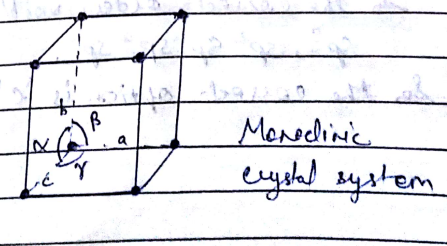 b
α β a
c γ
Monoclinic
crystal system